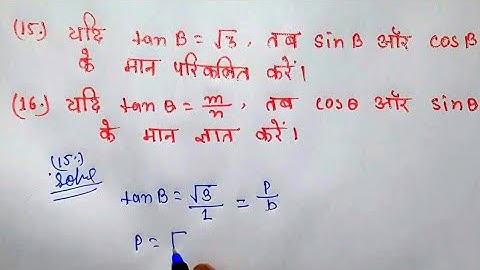 (15.) यदि tan B = √3, तब sin B और cos B
के मान परिकलित करें।
(16.) यदि tan θ = m/n, तब cos θ और sin θ
के मान ज्ञात करें।
(15.)
tan B = √3/1 = P/b
P = √